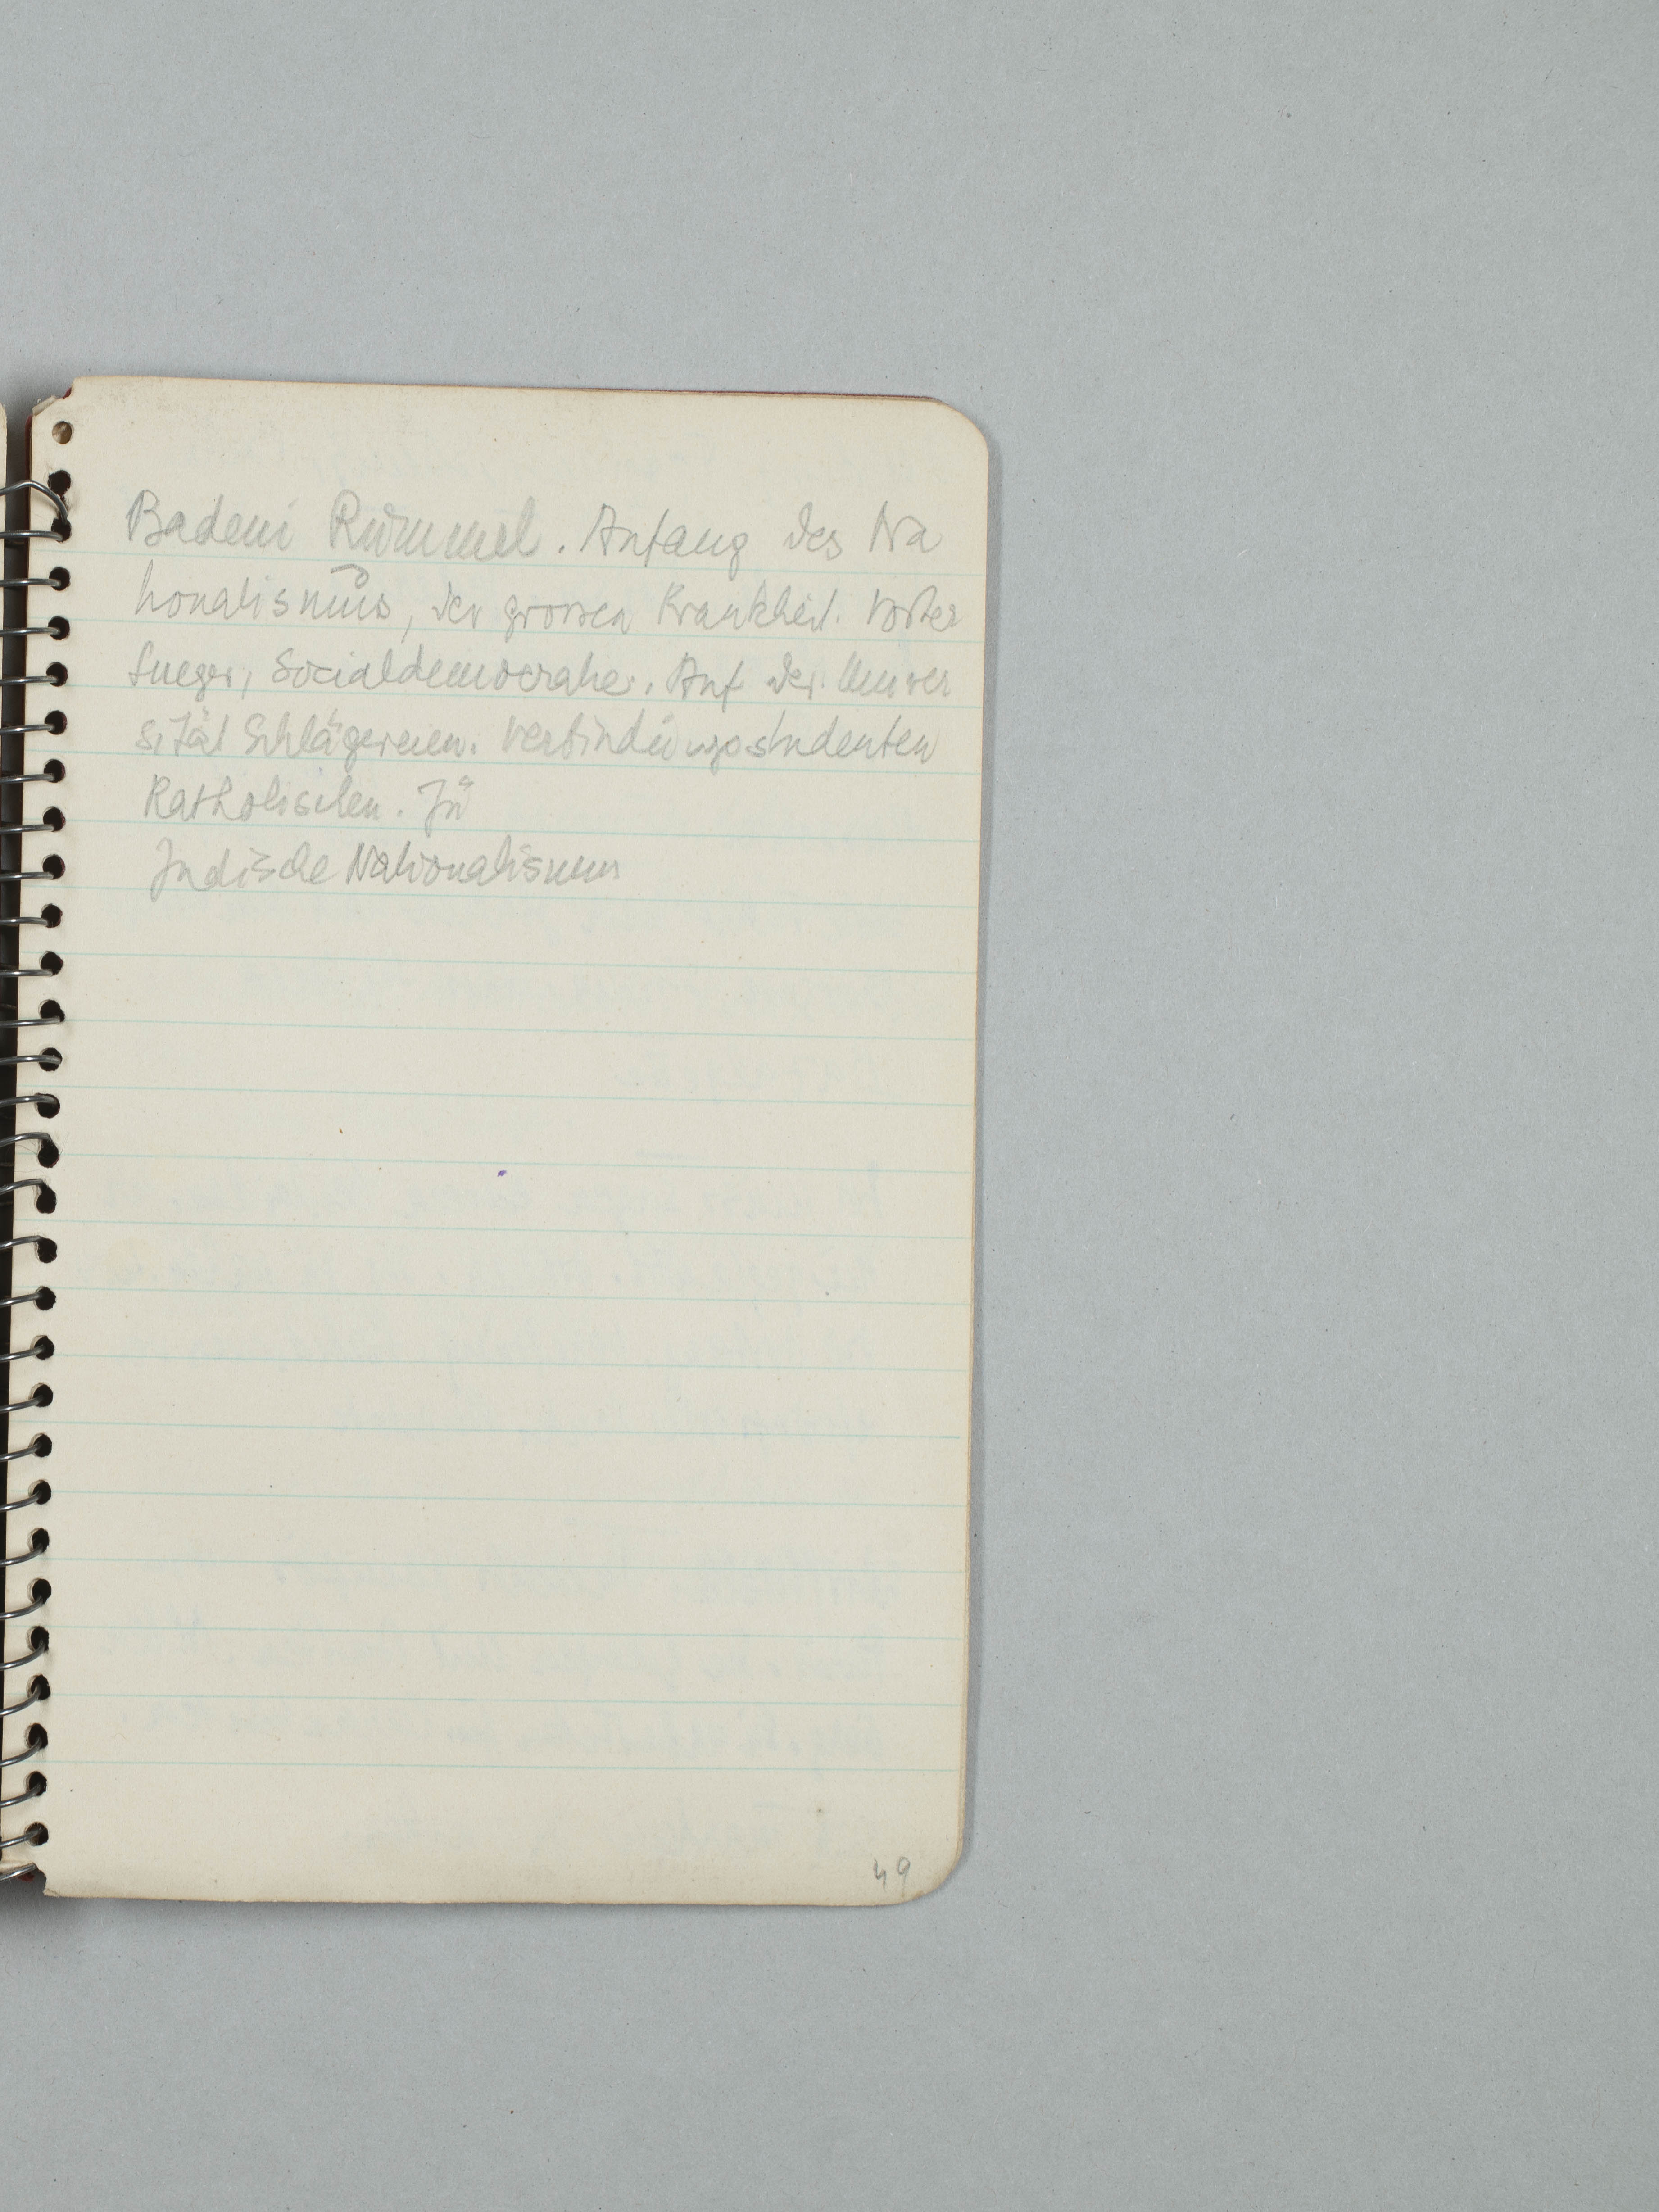 Badeni Rummel. Anfang des Na
tionalismus, der grossen Krankheit. Vorher
Lueger, Socialdemocratie. Auf der Univer
sität Schlägereien. Verbindungsstudenten
Katholischen. Jü
Jüdische Nationalismus
49